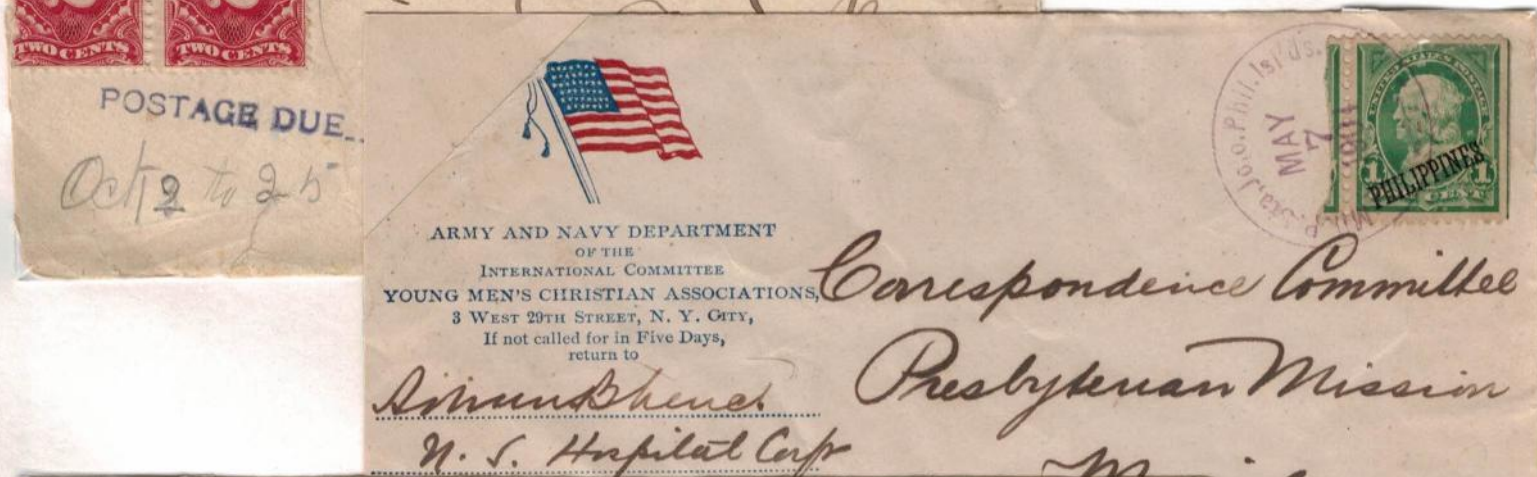 TWO CENTS TWO CENTS
POSTAGE DUE
Oct 2 to 25
ARMY AND NAVY DEPARTMENT
OF THE
INTERNATIONAL COMMITTEE
YOUNG MEN'S CHRISTIAN ASSOCIATIONS,
3 WEST 29TH STREET, N. Y. CITY,
If not called for in Five Days,
return to
U. S. Hospital Corp
Sta. Jo.o. Phil. Isl'ds.
MAY
7
UNITED STATES POSTAGE
1 1
CENT
PHILIPPINES
Correspondence Committee
Presbyterian Mission